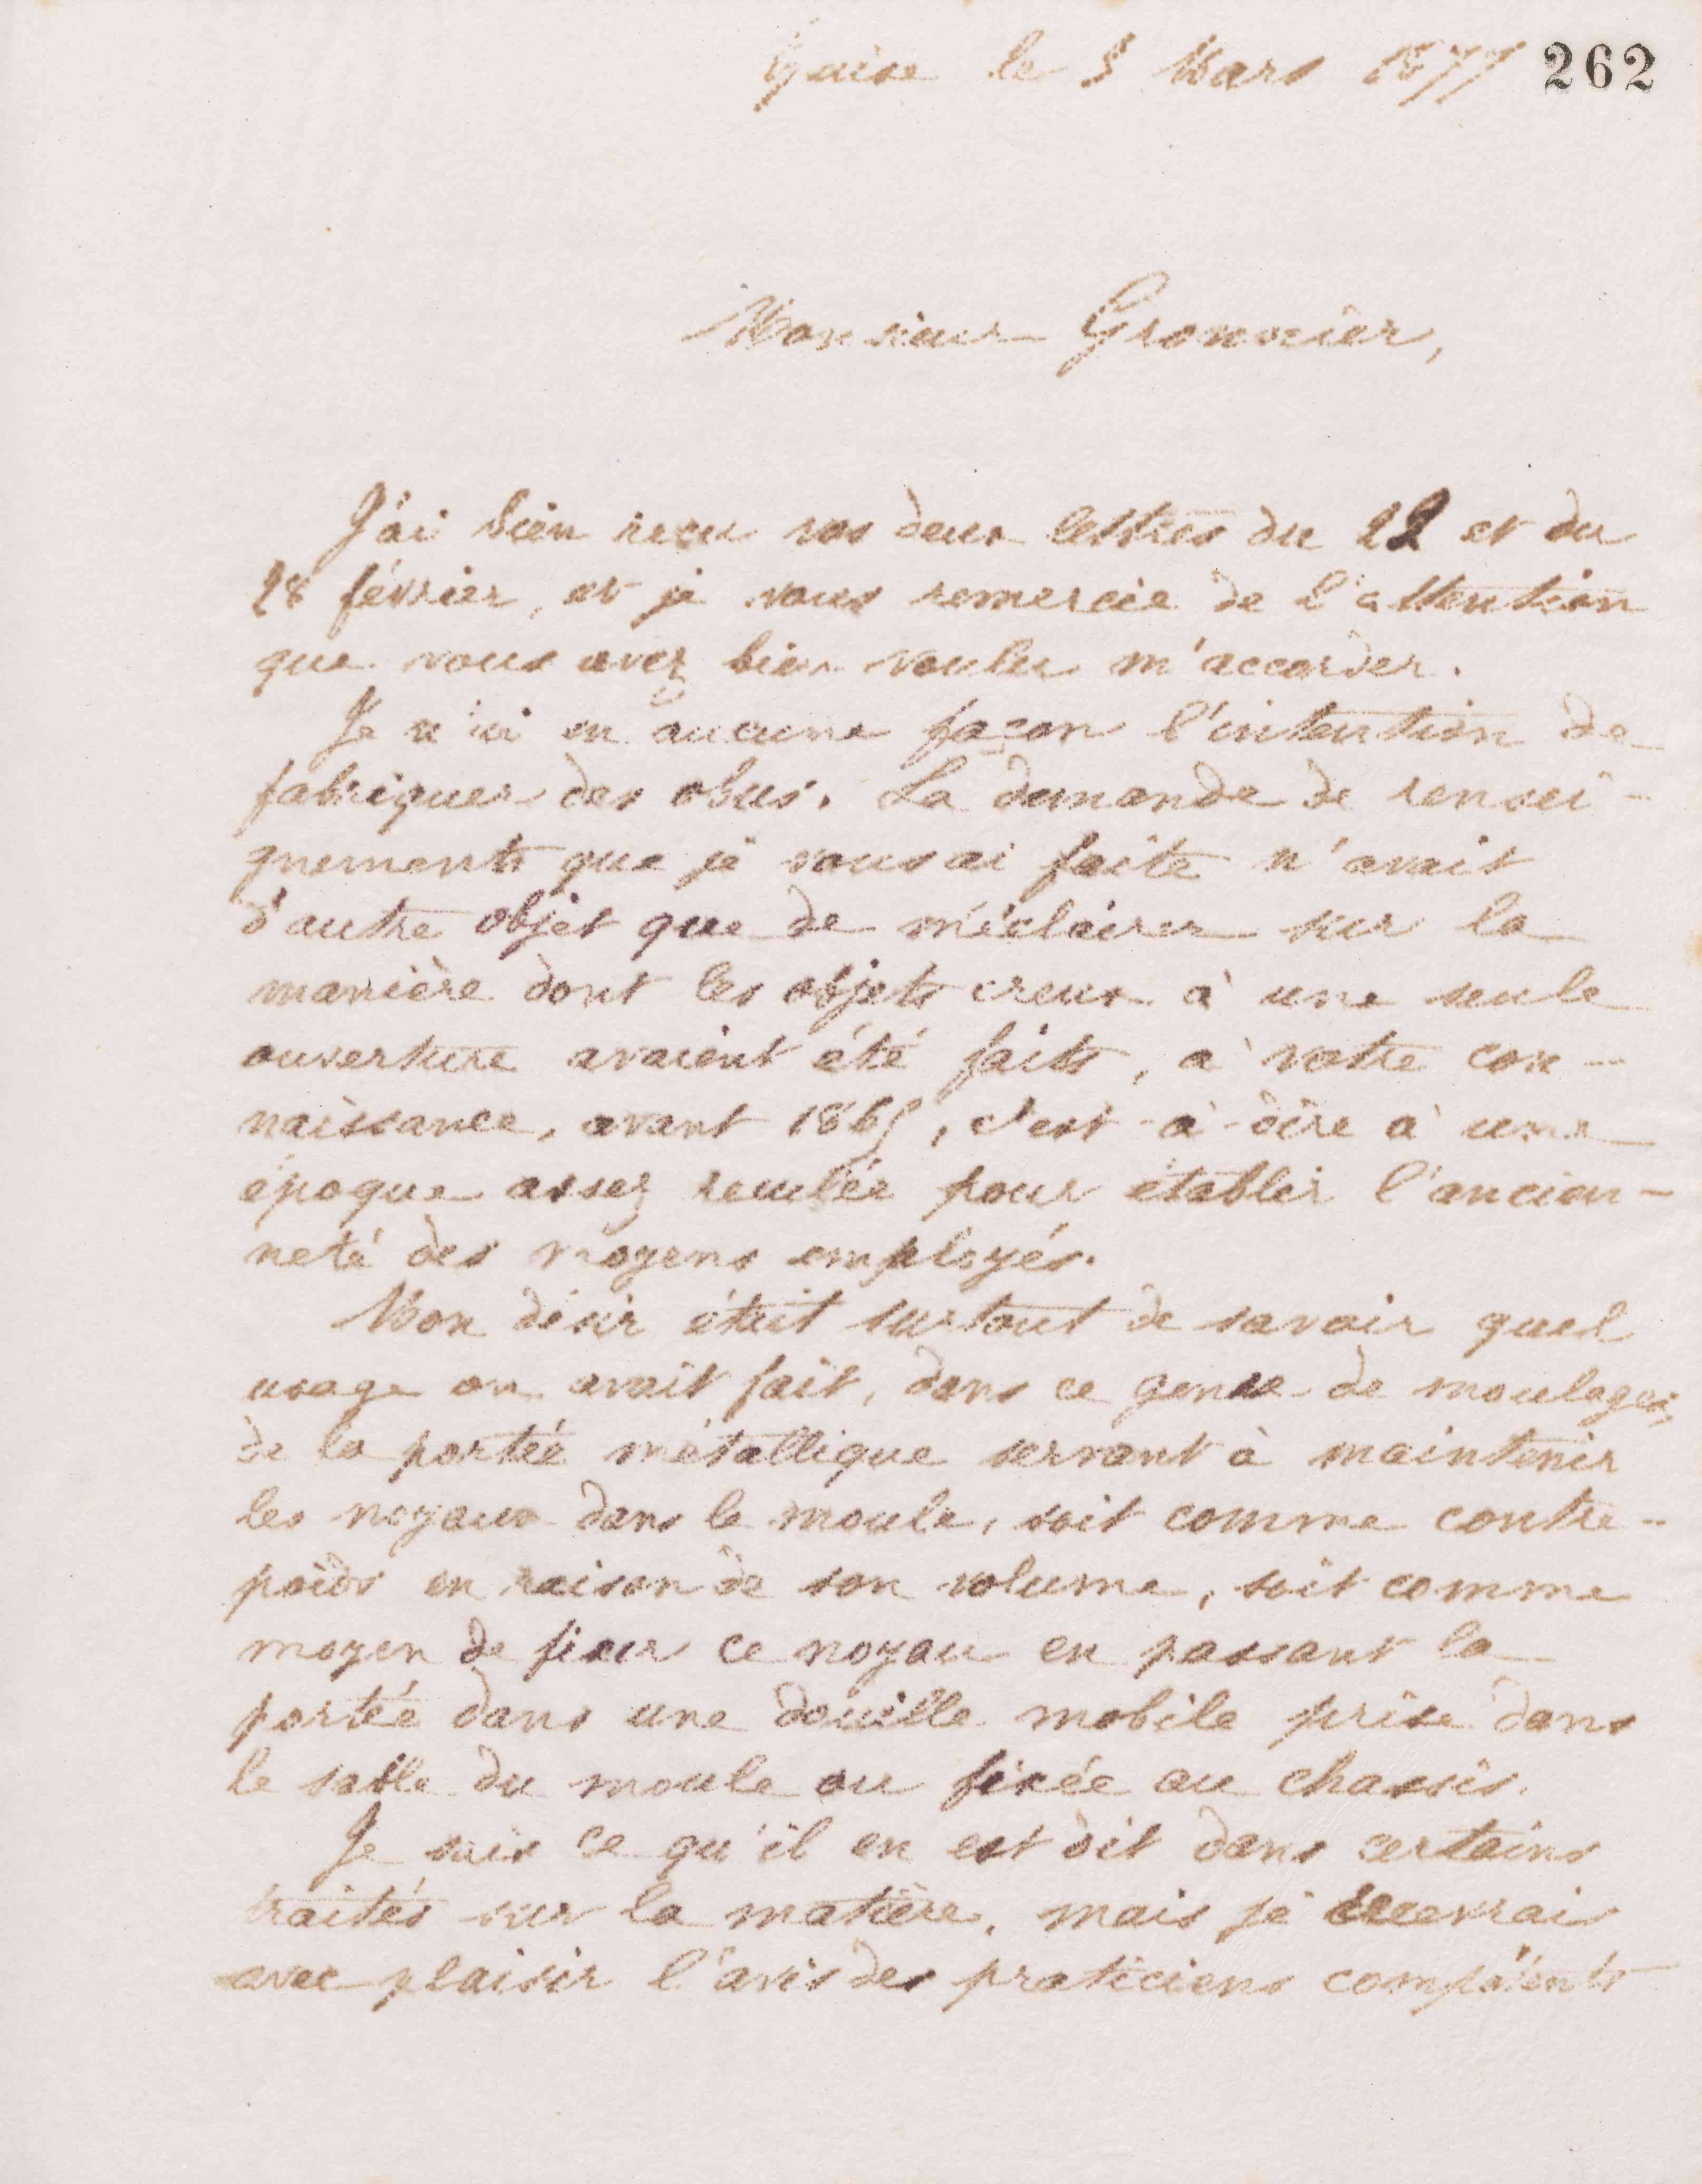 Guise le 5 Mars 1877 262
Monsieur Gronnier,
J'ai bien reçu vos deux lettres du 22 et du
28 février, et je vous remercie de l'attention
que vous avez bien voulu m'accorder.
Je n'ai en aucune façon l'intention de
fabriquer des obus. La demande de rensei-
gnements que je vous ai faite n'avait
d'autre objet que de m'éclairer sur la
manière dont les objets creux à une seule
ouverture avaient été faits, à votre con-
naissance, avant 1865, c'est-à-dire à une
époque assez reculée pour établir l'ancien-
neté des moyens employés.
Mon désir était surtout de savoir quel
usage on avait fait, dans ce genre de moulages,
de la portée métallique servant à maintenir
les noyaux dans le moule, soit comme contre-
poids en raison de son volume, soit comme
moyen de fixer ce noyau en passant la
portée dans une douille mobile prise dans
le sable du moule ou fixée au chassis.
Je sais ce qu'il en est dit dans certains
traités sur la matière, mais je recevrai
avec plaisir l'avis des praticiens compétents